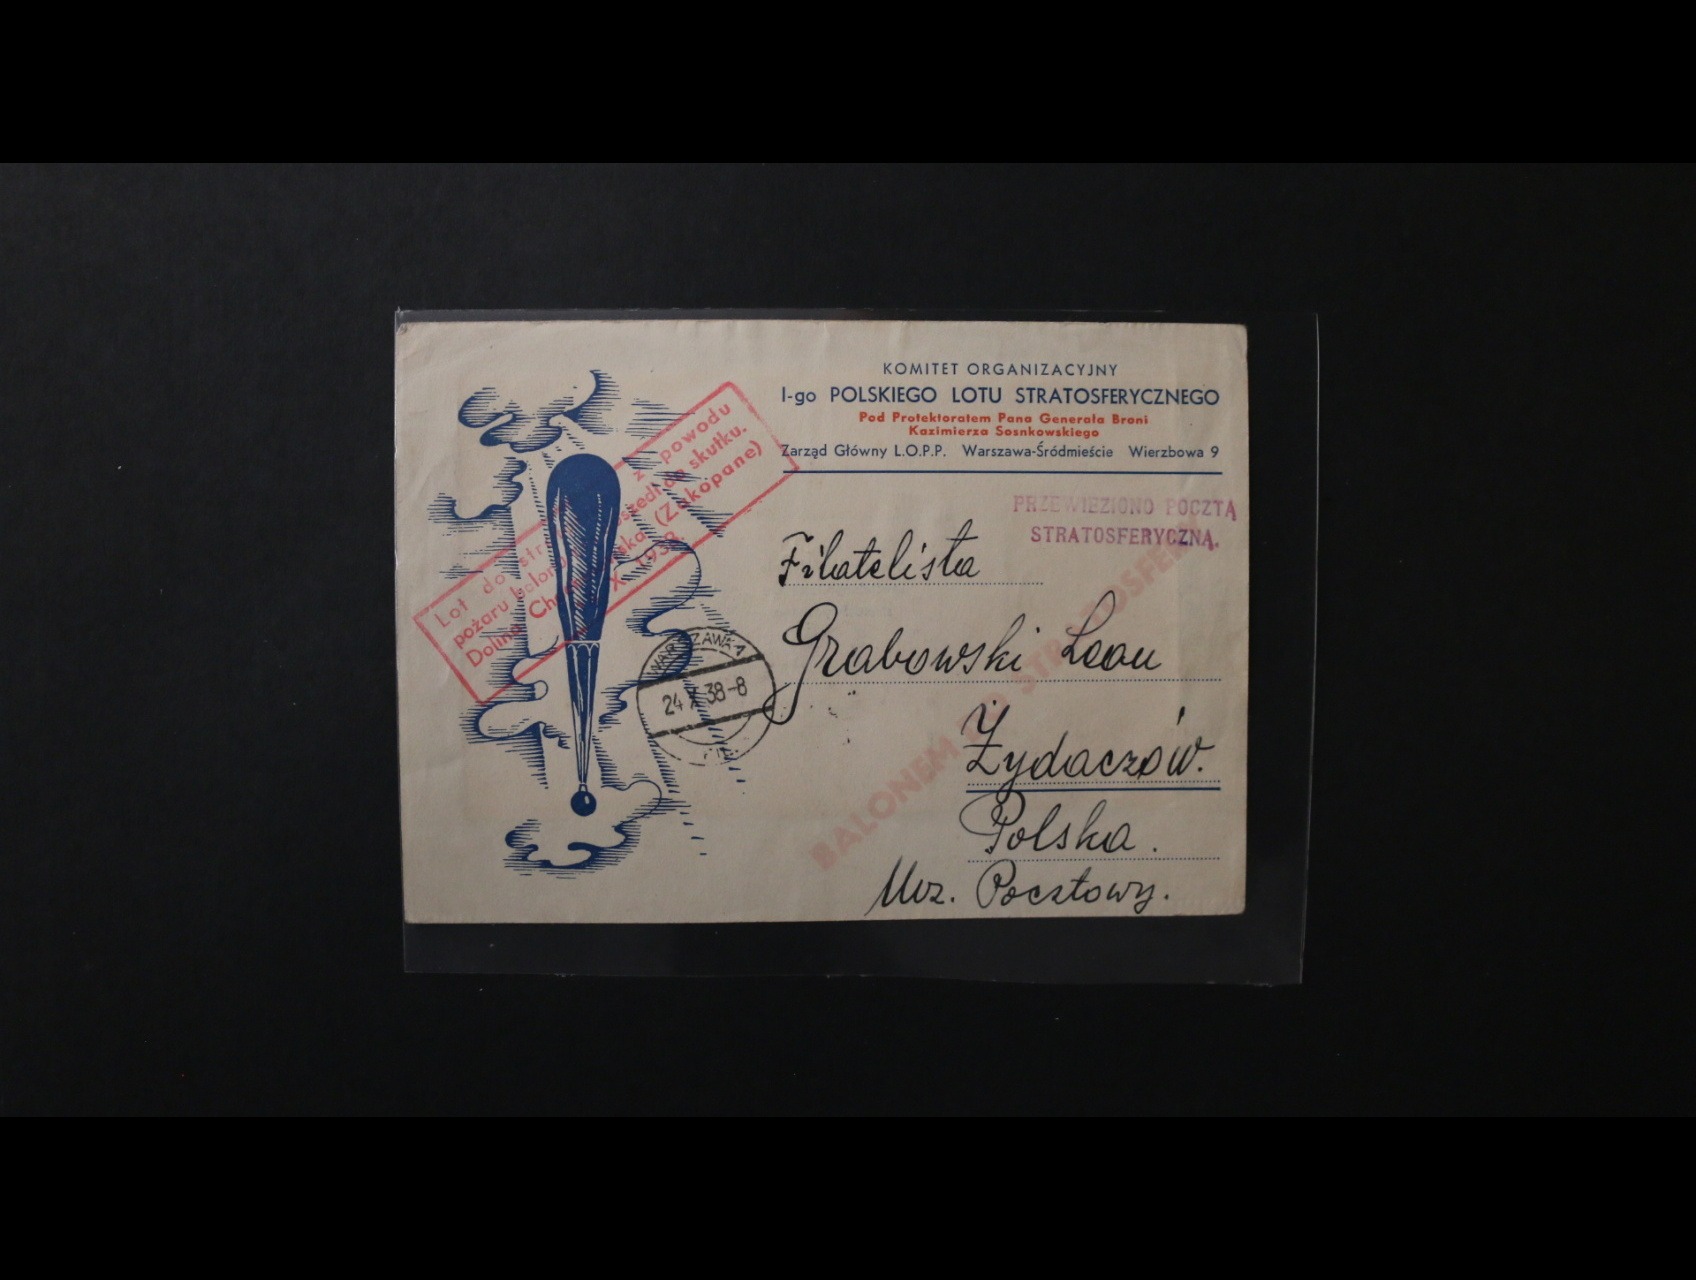 KOMITET ORGANIZACYJNY
I-go POLSKIEGO LOTU STRATOSFERYCZNEGO
Pod Protektoratem Pana Generała Broni
Kazimierza Sosnkowskiego
Zarząd Główny L.O.P.P. Warszawa-Śródmieście Wierzbowa 9
PRZEWIEZIONO POCZTĄ
STRATOSFERYCZNĄ.
Lot do z powodu
pożaru do skutku.
Dolina (Zakopane)
X. 1938.
BALONEM DO STRATOSFERY
WARSZAWA 1
24 X 38-8
Filatelista
Grabowski Leon
Żydaczów.
Polska.
Urz. Pocztowy.